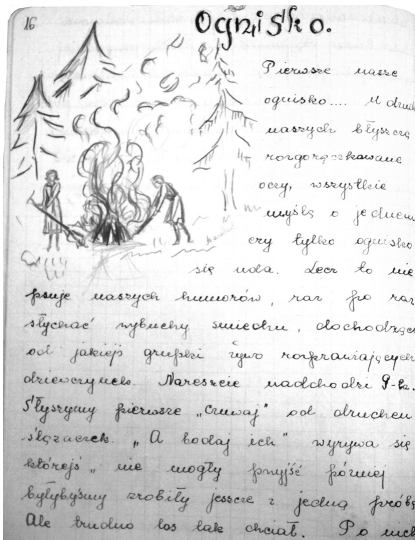 16
Ognisko.
Pierwsze nasze
ognisko.... U druh
naszych błyszczą
rozgorączkowane
oczy, wszystkie
myślą o jednem
czy tylko ognisko
się uda. Lecz to nie
psuje naszych humorów, raz po raz
słychać wybuchy śmiechu, dochodzące
od jakiejś grupki żywo rozprawiających
dziewczynek. Nareszcie nadchodzi 9-ta.
Słyszymy pierwsze „Czuwaj" od druhen
ślązaczek. „A bodaj ich" wyrywa się
którejś „nie mogły przyjść później
byłybyśmy zrobiły jeszcze z jedną próbę
Ale trudno los tak chciał. Po nich